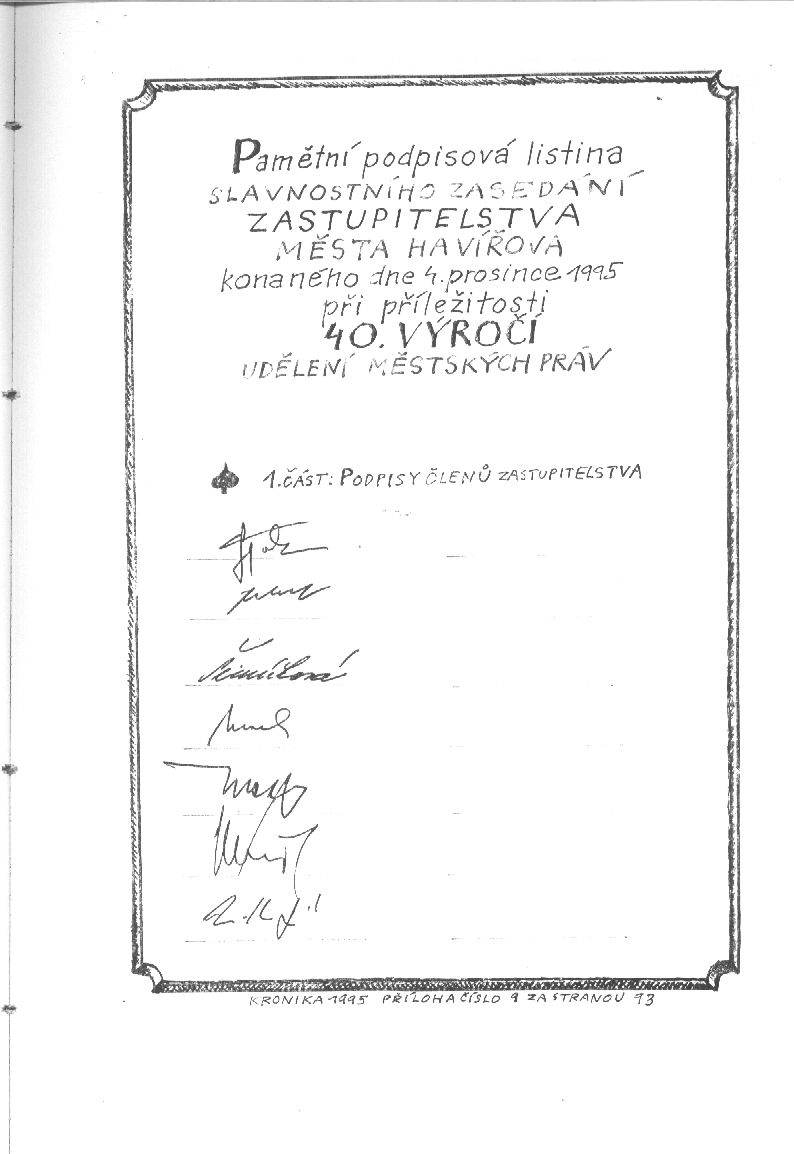 Pamětní podpisová listina
SLAVNOSTNÍHO ZASEDÁNÍ
ZASTUPITELSTVA
MĚSTA HAVÍŘOVA
konaného dne 4. prosince 1995
při příležitosti
40. VÝROČÍ
UDĚLENÍ MĚSTSKÝCH PRÁV
1. ČÁST: PODPISY ČLENŮ ZASTUPITELSTVA
KRONIKA 1995 PŘÍLOHA ČÍSLO 9 ZA STRANOU 93